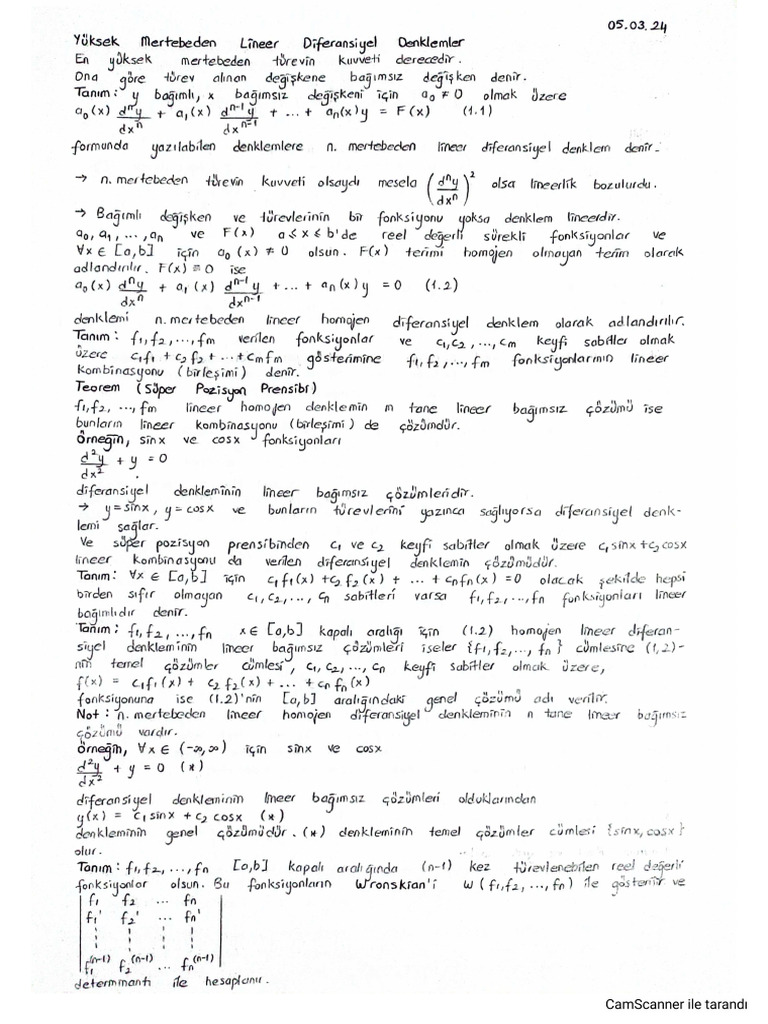 05.03.24
Yüksek Mertebeden Lineer Diferansiyel Denklemler
En yüksek mertebeden türevin kuvveti derecedir.
Ona göre türev alınan değişkene bağımsız değişken denir.
Tanım: y bağımlı, x bağımsız değişkeni için a₀ ≠ 0 olmak üzere
a₀(x) dⁿy/dxⁿ + a₁(x) dⁿ⁻¹y/dxⁿ⁻¹ + ... + aₙ(x)y = F(x) (1.1)
formunda yazılabilen denklemlere n. mertebeden lineer diferansiyel denklem denir.
→ n. mertebeden türevin kuvveti olsaydı mesela (dⁿy/dxⁿ)² olsa lineerlik bozulurdu.
→ Bağımlı değişken ve türevlerinin bir fonksiyonu yoksa denklem lineerdir.
a₀, a₁, ..., aₙ ve F(x) a ≤ x ≤ b'de reel değerli sürekli fonksiyonlar ve
∀x ∈ [a,b] için a₀(x) ≠ 0 olsun. F(x) terimi homojen olmayan terim olarak
adlandırılır. F(x) = 0 ise
a₀(x) dⁿy/dxⁿ + a₁(x) dⁿ⁻¹y/dxⁿ⁻¹ + ... + aₙ(x)y = 0 (1.2)
denklemi n. mertebeden lineer homojen diferansiyel denklem olarak adlandırılır.
Tanım: f₁, f₂, ..., fm verilen fonksiyonlar ve c₁, c₂, ..., cm keyfi sabitler olmak
üzere c₁f₁ + c₂f₂ + ... + cmfm gösterimine f₁, f₂, ..., fm fonksiyonlarının lineer
kombinasyonu (birleşimi) denir.
Teorem (Süper Pozisyon Prensibi)
f₁, f₂, ..., fm lineer homojen denklemin m tane lineer bağımsız çözümü ise
bunların lineer kombinasyonu (birleşimi) de çözümdür.
Örneğin, sinx ve cosx fonksiyonları
d²y/dx² + y = 0
diferansiyel denkleminin lineer bağımsız çözümleridir.
→ y = sinx, y = cosx ve bunların türevlerini yazınca sağlıyorsa diferansiyel denk-
lemi sağlar.
Ve süper pozisyon prensibinden c₁ ve c₂ keyfi sabitler olmak üzere c₁sinx + c₂cosx
lineer kombinasyonu da verilen diferansiyel denklemin çözümüdür.
Tanım: ∀x ∈ [a,b] için c₁f₁(x) + c₂f₂(x) + ... + cₙfₙ(x) = 0 olacak şekilde hepsi
birden sıfır olmayan c₁, c₂, ..., cₙ sabitleri varsa f₁, f₂, ..., fₙ fonksiyonları lineer
bağımlıdır denir.
Tanım: f₁, f₂, ..., fₙ x ∈ [a,b] kapalı aralığı için (1.2) homojen lineer diferan-
siyel denkleminin lineer bağımsız çözümleri iseler {f₁, f₂, ..., fₙ} cümlesine (1.2)-
nin temel çözümler cümlesi, c₁, c₂, ..., cₙ keyfi sabitler olmak üzere,
f(x) = c₁f₁(x) + c₂f₂(x) + ... + cₙfₙ(x)
fonksiyonuna ise (1.2)'nin [a,b] aralığındaki genel çözümü adı verilir.
Not: n. mertebeden lineer homojen diferansiyel denkleminin n tane lineer bağımsız
çözümü vardır.
Örneğin, ∀x ∈ (-∞, ∞) için sinx ve cosx
d²y/dx² + y = 0 (*)
diferansiyel denkleminin lineer bağımsız çözümleri olduklarından
y(x) = c₁sinx + c₂cosx (*)
denkleminin genel çözümüdür. (*) denkleminin temel çözümler cümlesi {sinx, cosx}
olur.
Tanım: f₁, f₂, ..., fₙ [a,b] kapalı aralığında (n-1) kez türevlenebilen reel değerli
fonksiyonlar olsun. Bu fonksiyonların Wronskian'i W(f₁, f₂, ..., fₙ) ile gösterilir ve
| f₁ f₂ ... fₙ |
| f₁' f₂' ... fₙ' |
| ⋮ ⋮ ⋮ ⋮ |
| f₁⁽ⁿ⁻¹⁾ f₂⁽ⁿ⁻¹⁾ ... fₙ⁽ⁿ⁻¹⁾ |
determinantı ile hesaplanır.
CamScanner ile tarandı